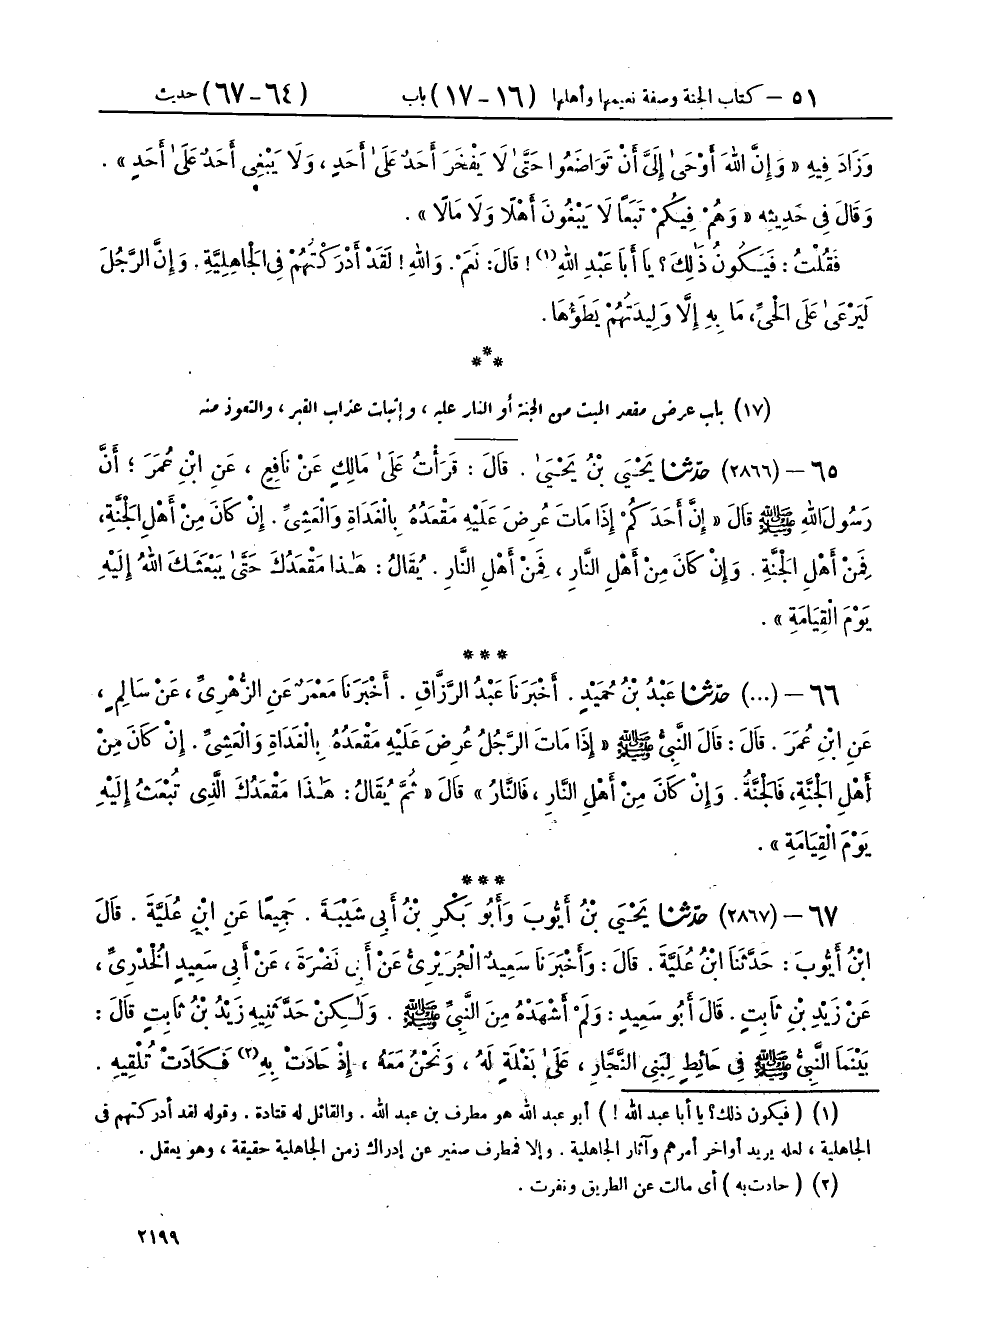 ٥١ – كتاب الجنة وصفة نعيمها وأهلها (١٦-١٧) باب (٦٤-٦٧) حديث
وَزَادَ فِيهِ « وَإِنَّ اللهَ أَوْحَىٰ إِلَىَّ أَنْ تَوَاضَعُوا حَتَّىٰ لَا يَفْخَرَ أَحَدٌ عَلَىٰ أَحَدٍ ، وَلَا يَبْغِى أَحَدٌ عَلَىٰ أَحَدٍ » .
وَقَالَ فِى حَدِيثِهِ « وَهُمْ فِيكُمْ تَبَعًا لَا يَبْغُونَ أَهْلًا وَلَا مَالًا » .
فَقُلْتُ : فَيَكُونُ ذَٰلِكَ ؟ يَا أَبَا عَبْدِ اللهِ(١) ! قَالَ : نَعَمْ . وَاللهِ ! لَقَدْ أَدْرَكْتُهُمْ فِى الْجَاهِلِيَّةِ . وَإِنَّ الرَّجُلَ
لَيَرْعَىٰ عَلَى الْحَىِّ ، مَا بِهِ إِلَّا وَلِيدَتُهُمْ يَطَؤُهَا .
***
(١٧) باب عرض مقعد الميت من الجنة أو النار عليه ، وإثبات عذاب القبر ، والتعوذ منه
٦٥ – (٢٨٦٦) حَدَّثَنَا يَحْيَى بْنُ يَحْيَىٰ . قَالَ : قَرَأْتُ عَلَىٰ مَالِكٍ عَنْ نَافِعٍ ، عَنِ ابْنِ عُمَرَ ؛ أَنَّ
رَسُولَ اللهِ ﷺ قَالَ « إِنَّ أَحَدَكُمْ إِذَا مَاتَ عُرِضَ عَلَيْهِ مَقْعَدُهُ بِالْغَدَاةِ وَالْعَشِىِّ . إِنْ كَانَ مِنْ أَهْلِ الْجَنَّةِ ،
فَمِنْ أَهْلِ الْجَنَّةِ . وَإِنْ كَانَ مِنْ أَهْلِ النَّارِ ، فَمِنْ أَهْلِ النَّارِ . يُقَالُ : هَٰذَا مَقْعَدُكَ حَتَّىٰ يَبْعَثَكَ اللهُ إِلَيْهِ
يَوْمَ الْقِيَامَةِ » .
***
٦٦ – (...) حَدَّثَنَا عَبْدُ بْنُ حُمَيْدٍ . أَخْبَرَنَا عَبْدُ الرَّزَّاقِ . أَخْبَرَنَا مَعْمَرٌ عَنِ الزُّهْرِىِّ ، عَنْ سَالِمٍ ،
عَنِ ابْنِ عُمَرَ . قَالَ : قَالَ النَّبِىُّ ﷺ « إِذَا مَاتَ الرَّجُلُ عُرِضَ عَلَيْهِ مَقْعَدُهُ بِالْغَدَاةِ وَالْعَشِىِّ . إِنْ كَانَ مِنْ
أَهْلِ الْجَنَّةِ ، فَالْجَنَّةُ . وَإِنْ كَانَ مِنْ أَهْلِ النَّارِ ، فَالنَّارُ » قَالَ « ثُمَّ يُقَالُ : هَٰذَا مَقْعَدُكَ الَّذِى تُبْعَثُ إِلَيْهِ
يَوْمَ الْقِيَامَةِ » .
***
٦٧ – (٢٨٦٧) حَدَّثَنَا يَحْيَى بْنُ أَيُّوبَ وَأَبُو بَكْرِ بْنُ أَبِى شَيْبَةَ . جَمِيعًا عَنِ ابْنِ عُلَيَّةَ . قَالَ
ابْنُ أَيُّوبَ : حَدَّثَنَا ابْنُ عُلَيَّةَ . قَالَ : وَأَخْبَرَنَا سَعِيدٌ الْجُرَيْرِىُّ عَنْ أَبِى نَضْرَةَ ، عَنْ أَبِى سَعِيدٍ الْخُدْرِىِّ ،
عَنْ زَيْدِ بْنِ ثَابِتٍ . قَالَ أَبُو سَعِيدٍ : وَلَمْ أَشْهَدْهُ مِنَ النَّبِىِّ ﷺ . وَلَٰكِنْ حَدَّثَنِيهِ زَيْدُ بْنُ ثَابِتٍ قَالَ :
بَيْنَمَا النَّبِىُّ ﷺ فِى حَائِطٍ لِبَنِى النَّجَّارِ ، عَلَىٰ بَغْلَةٍ لَهُ ، وَنَحْنُ مَعَهُ ، إِذْ حَادَتْ بِهِ(٢) فَكَادَتْ تُلْقِيهِ .
(١) ( فيكون ذلك ؟ يا أبا عبد الله ! ) أبو عبد الله هو مطرف بن عبد الله . والقائل له قتادة . وقوله لقد أدركتهم فى
الجاهلية ، لعله يريد أواخر أمرهم وآثار الجاهلية . وإلا فمطرف صغير عن إدراك زمن الجاهلية حقيقة ، وهو يعقل .
(٢) ( حادت به ) أى مالت عن الطريق ونفرت .
٢١٩٩